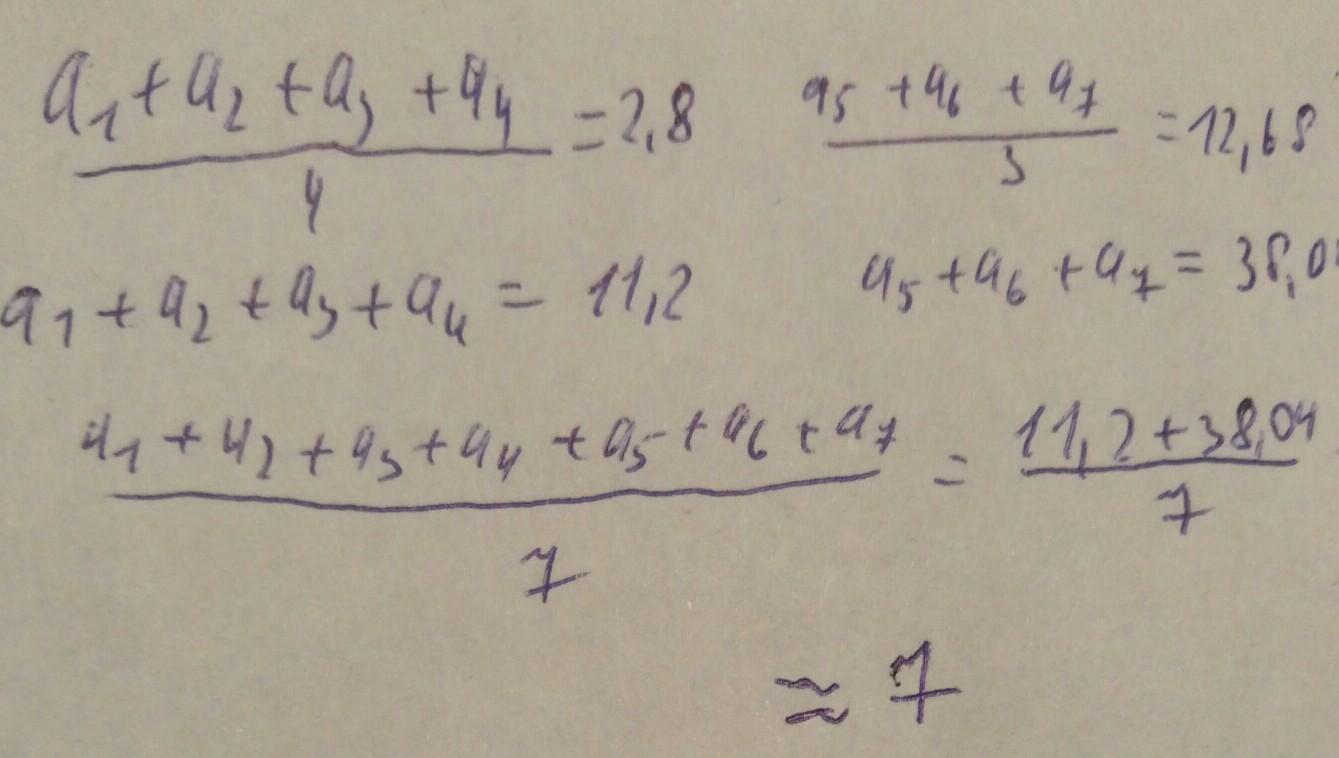 a₁ + a₂ + a₃ + a₄ / 4 = 2,8    a₅ + a₆ + a₇ / 3 = 12,68
a₁ + a₂ + a₃ + a₄ = 11,2    a₅ + a₆ + a₇ = 38,0
a₁ + a₂ + a₃ + a₄ + a₅ + a₆ + a₇ / 7 = 11,2 + 38,04 / 7
≈ 7